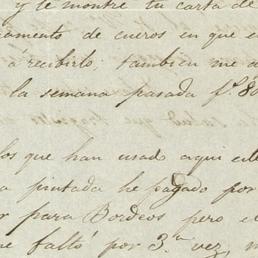 y te montre tu carta de
amento de cueros en que e
á recibirlo. tambien me a
la semana pasada f.c 80
los que han usado aqui ell
a pintada he pagado por
r para Bordeos pero el
ne faltó por 3.a vez, m